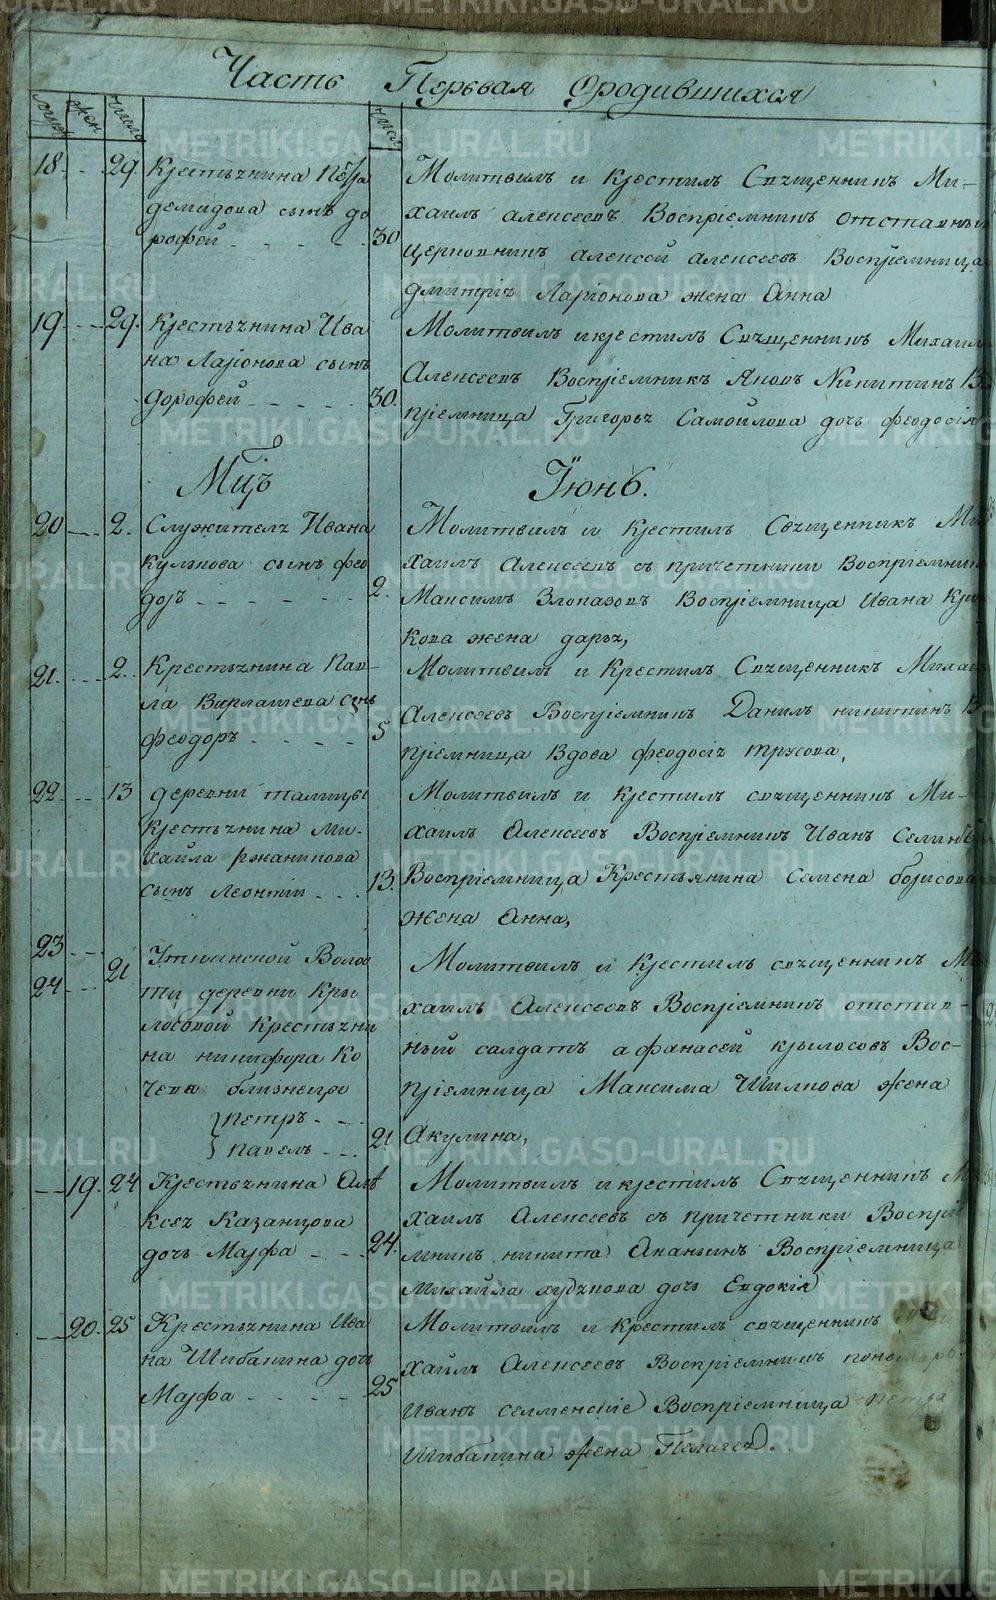 Часть Первая ородившихся
муж жен числа числа
18. 29. Крестьянина Петра
демидова сынъ до
рофей 30
Молитвилъ и крестилъ Священникъ Ми-
хаилъ алексеевъ Воспріемникъ отставный
церковникъ алексей алексеевъ Воспріемница
дмитрія Ларіонова жена Анна
19. 29. Крестьянина Ива
на Ларіонова сынъ
дорофей 30.
Молитвилъ и крестилъ Священникъ Михаилъ
Алексеевъ Воспріемникъ Яковъ Никитинъ В
пріемница Григорья Самойлова дочь феодосія
Мцъ Іюнь.
20 2. Служителя Ивана
Куликова сынъ фео
доръ 2.
Молитвилъ и крестилъ Священникъ Ми
хаилъ Алексеевъ съ причетники Воспріемникъ
Максимъ Злоказовъ Воспріемница Ивана
кова жена дарья,
21. 2. Крестьянина Пав-
ла Варлашева сынъ
феодоръ 5
Молитвилъ и Крестилъ Священникъ Михаи
Алексеевъ Воспріемникъ Данилъ никитинъ В
пріемница Вдова феодосія трусова,
22. 13 деревни талицы
крестьянина ми-
хайла ржаникова
сынъ леонтіи 13.
Молитвилъ и крестилъ священникъ Ми-
хаилъ Алексеевъ Воспріемникъ Иванъ
Воспріемница Крестьянина Семена борисова
жена Анна,
23
24 21 Уткинской Волос
ти деревни Кры
лосовой Крестьяни
на никифора Ко
чева близнецы
петръ
павелъ 21
Молитвилъ и крестилъ священникъ Ми
хаилъ Алексеевъ Воспріемникъ отстав-
ный салдатъ афанасей крылосовъ Вос-
пріемница Максима Шилкова жена
Акулина,
19. 24 Крестьянина Алѣ
ксея Казанцова
дочь Марфа 24.
Молитвилъ и крестилъ Священникъ Ми
хаилъ Алексеевъ съ причетники Воспріе
мникъ никита Ананьинъ Воспріемница
Михайла худякова дочь Евдокія
20. 25 Крестьянина Ива
на Шибакина дочь
Марфа 25
Молитвилъ и крестилъ священникъ Ми
хаилъ Алексеевъ Воспріемникъ пономарь
Иванъ селменскіе Воспріемница петра
Шибакина жена Пелагея.
METRIKI.GASO-URAL.RU